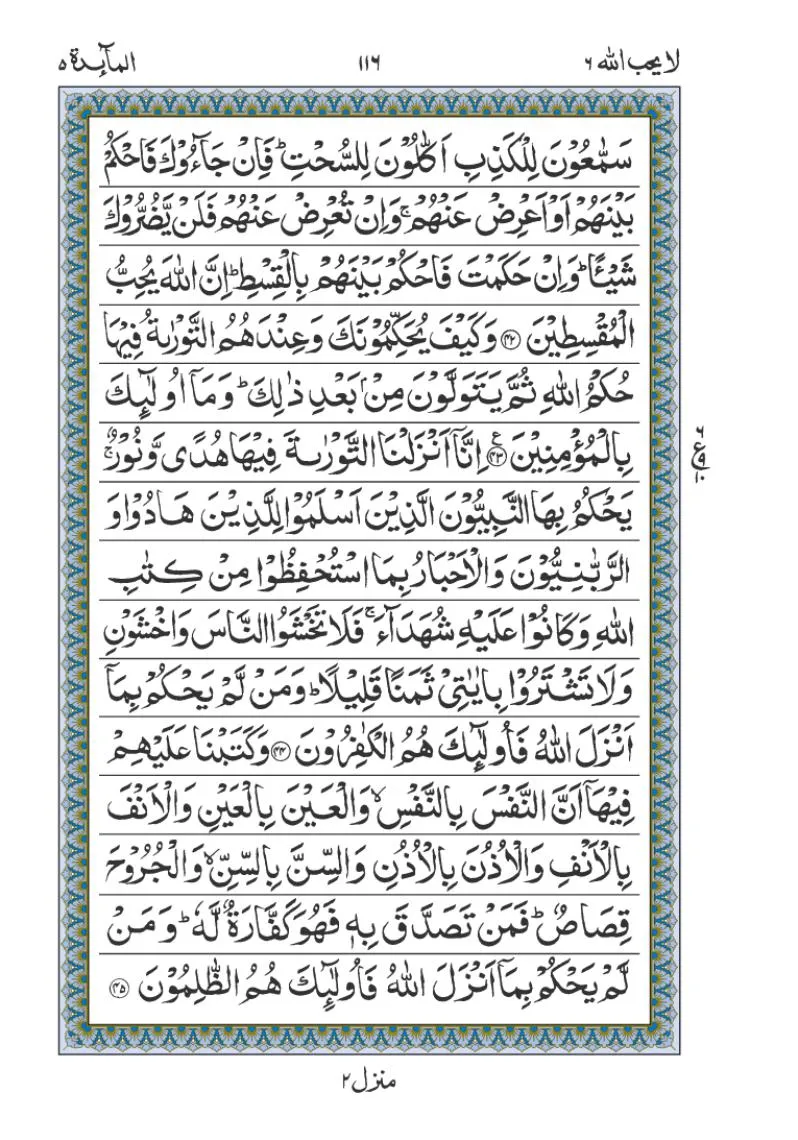 لا یحب اللہ ۶
۱۱۶
المآئدۃ ۵
سَمّٰعُوۡنَ لِلۡكَذِبِ اَكّٰلُوۡنَ لِلسُّحۡتِ‌ؕ فَاِنۡ جَآءُوۡكَ فَاحۡكُمۡ
بَيۡنَهُمۡ اَوۡ اَعۡرِضۡ عَنۡهُمۡ‌ۚ وَاِنۡ تُعۡرِضۡ عَنۡهُمۡ فَلَنۡ يَّضُرُّوۡكَ
شَيۡـــًٔا‌ؕ وَاِنۡ حَكَمۡتَ فَاحۡكُمۡ بَيۡنَهُمۡ بِالۡقِسۡطِ‌ؕ اِنَّ اللّٰهَ يُحِبُّ
الۡمُقۡسِطِيۡنَ ﴿۴۲﴾ وَكَيۡفَ يُحَكِّمُوۡنَكَ وَعِنۡدَهُمُ التَّوۡرٰٮةُ فِيۡهَا
حُكۡمُ اللّٰهِ ثُمَّ يَتَوَلَّوۡنَ مِنۡۢ بَعۡدِ ذٰ لِكَ‌ؕ وَمَاۤ اُولٰٓٮِٕكَ
بِالۡمُؤۡمِنِيۡنَ ﴿۴۳﴾ ع اِنَّاۤ اَنۡزَلۡنَا التَّوۡرٰٮةَ فِيۡهَا هُدًى وَّنُوۡرٌ‌ۚ
يَحۡكُمُ بِهَا النَّبِيُّوۡنَ الَّذِيۡنَ اَسۡلَمُوۡا لِلَّذِيۡنَ هَادُوۡا وَ
الرَّبَّانِيُّوۡنَ وَالۡاَحۡبَارُ بِمَا اسۡتُحۡفِظُوۡا مِنۡ كِتٰبِ
اللّٰهِ وَكَانُوۡا عَلَيۡهِ شُهَدَآءَ‌ۚ فَلَا تَخۡشَوُا النَّاسَ وَاخۡشَوۡنِ
وَلَا تَشۡتَرُوۡا بِاٰيٰتِىۡ ثَمَنًا قَلِيۡلًا‌ؕ وَمَنۡ لَّمۡ يَحۡكُمۡ بِمَاۤ
اَنۡزَلَ اللّٰهُ فَاُولٰٓٮِٕكَ هُمُ الۡكٰفِرُوۡنَ ﴿۴۴﴾ وَكَتَبۡنَا عَلَيۡهِمۡ
فِيۡهَاۤ اَنَّ النَّفۡسَ بِالنَّفۡسِۙ وَالۡعَيۡنَ بِالۡعَيۡنِ وَالۡاَنۡفَ
بِالۡاَنۡفِ وَالۡاُذُنَ بِالۡاُذُنِ وَالسِّنَّ بِالسِّنِّۙ وَالۡجُرُوۡحَ
قِصَاصٌ‌ؕ فَمَنۡ تَصَدَّقَ بِهٖ فَهُوَ كَفَّارَةٌ لَّهٗ‌ؕ وَمَنۡ
لَّمۡ يَحۡكُمۡ بِمَاۤ اَنۡزَلَ اللّٰهُ فَاُولٰٓٮِٕكَ هُمُ الظّٰلِمُوۡنَ ﴿۴۵﴾
۶
ع ۹
۱۰
منزل ۲